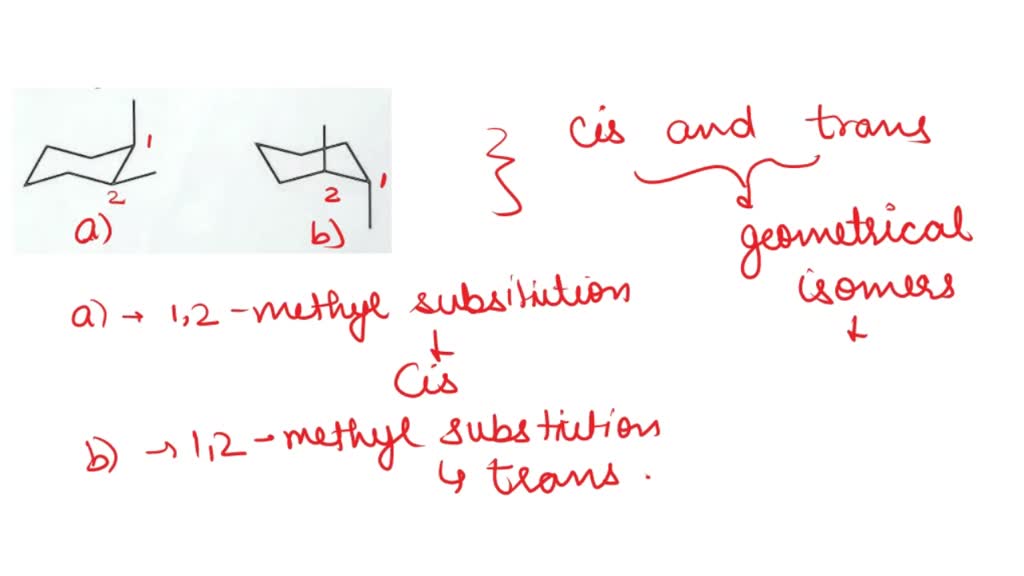 1
2
a)
1
2
b)
cis and trans
geometrical
isomers
a) → 1,2-methyl subsitution
Cis
b) → 1,2-methyl substitution
↳ trans .